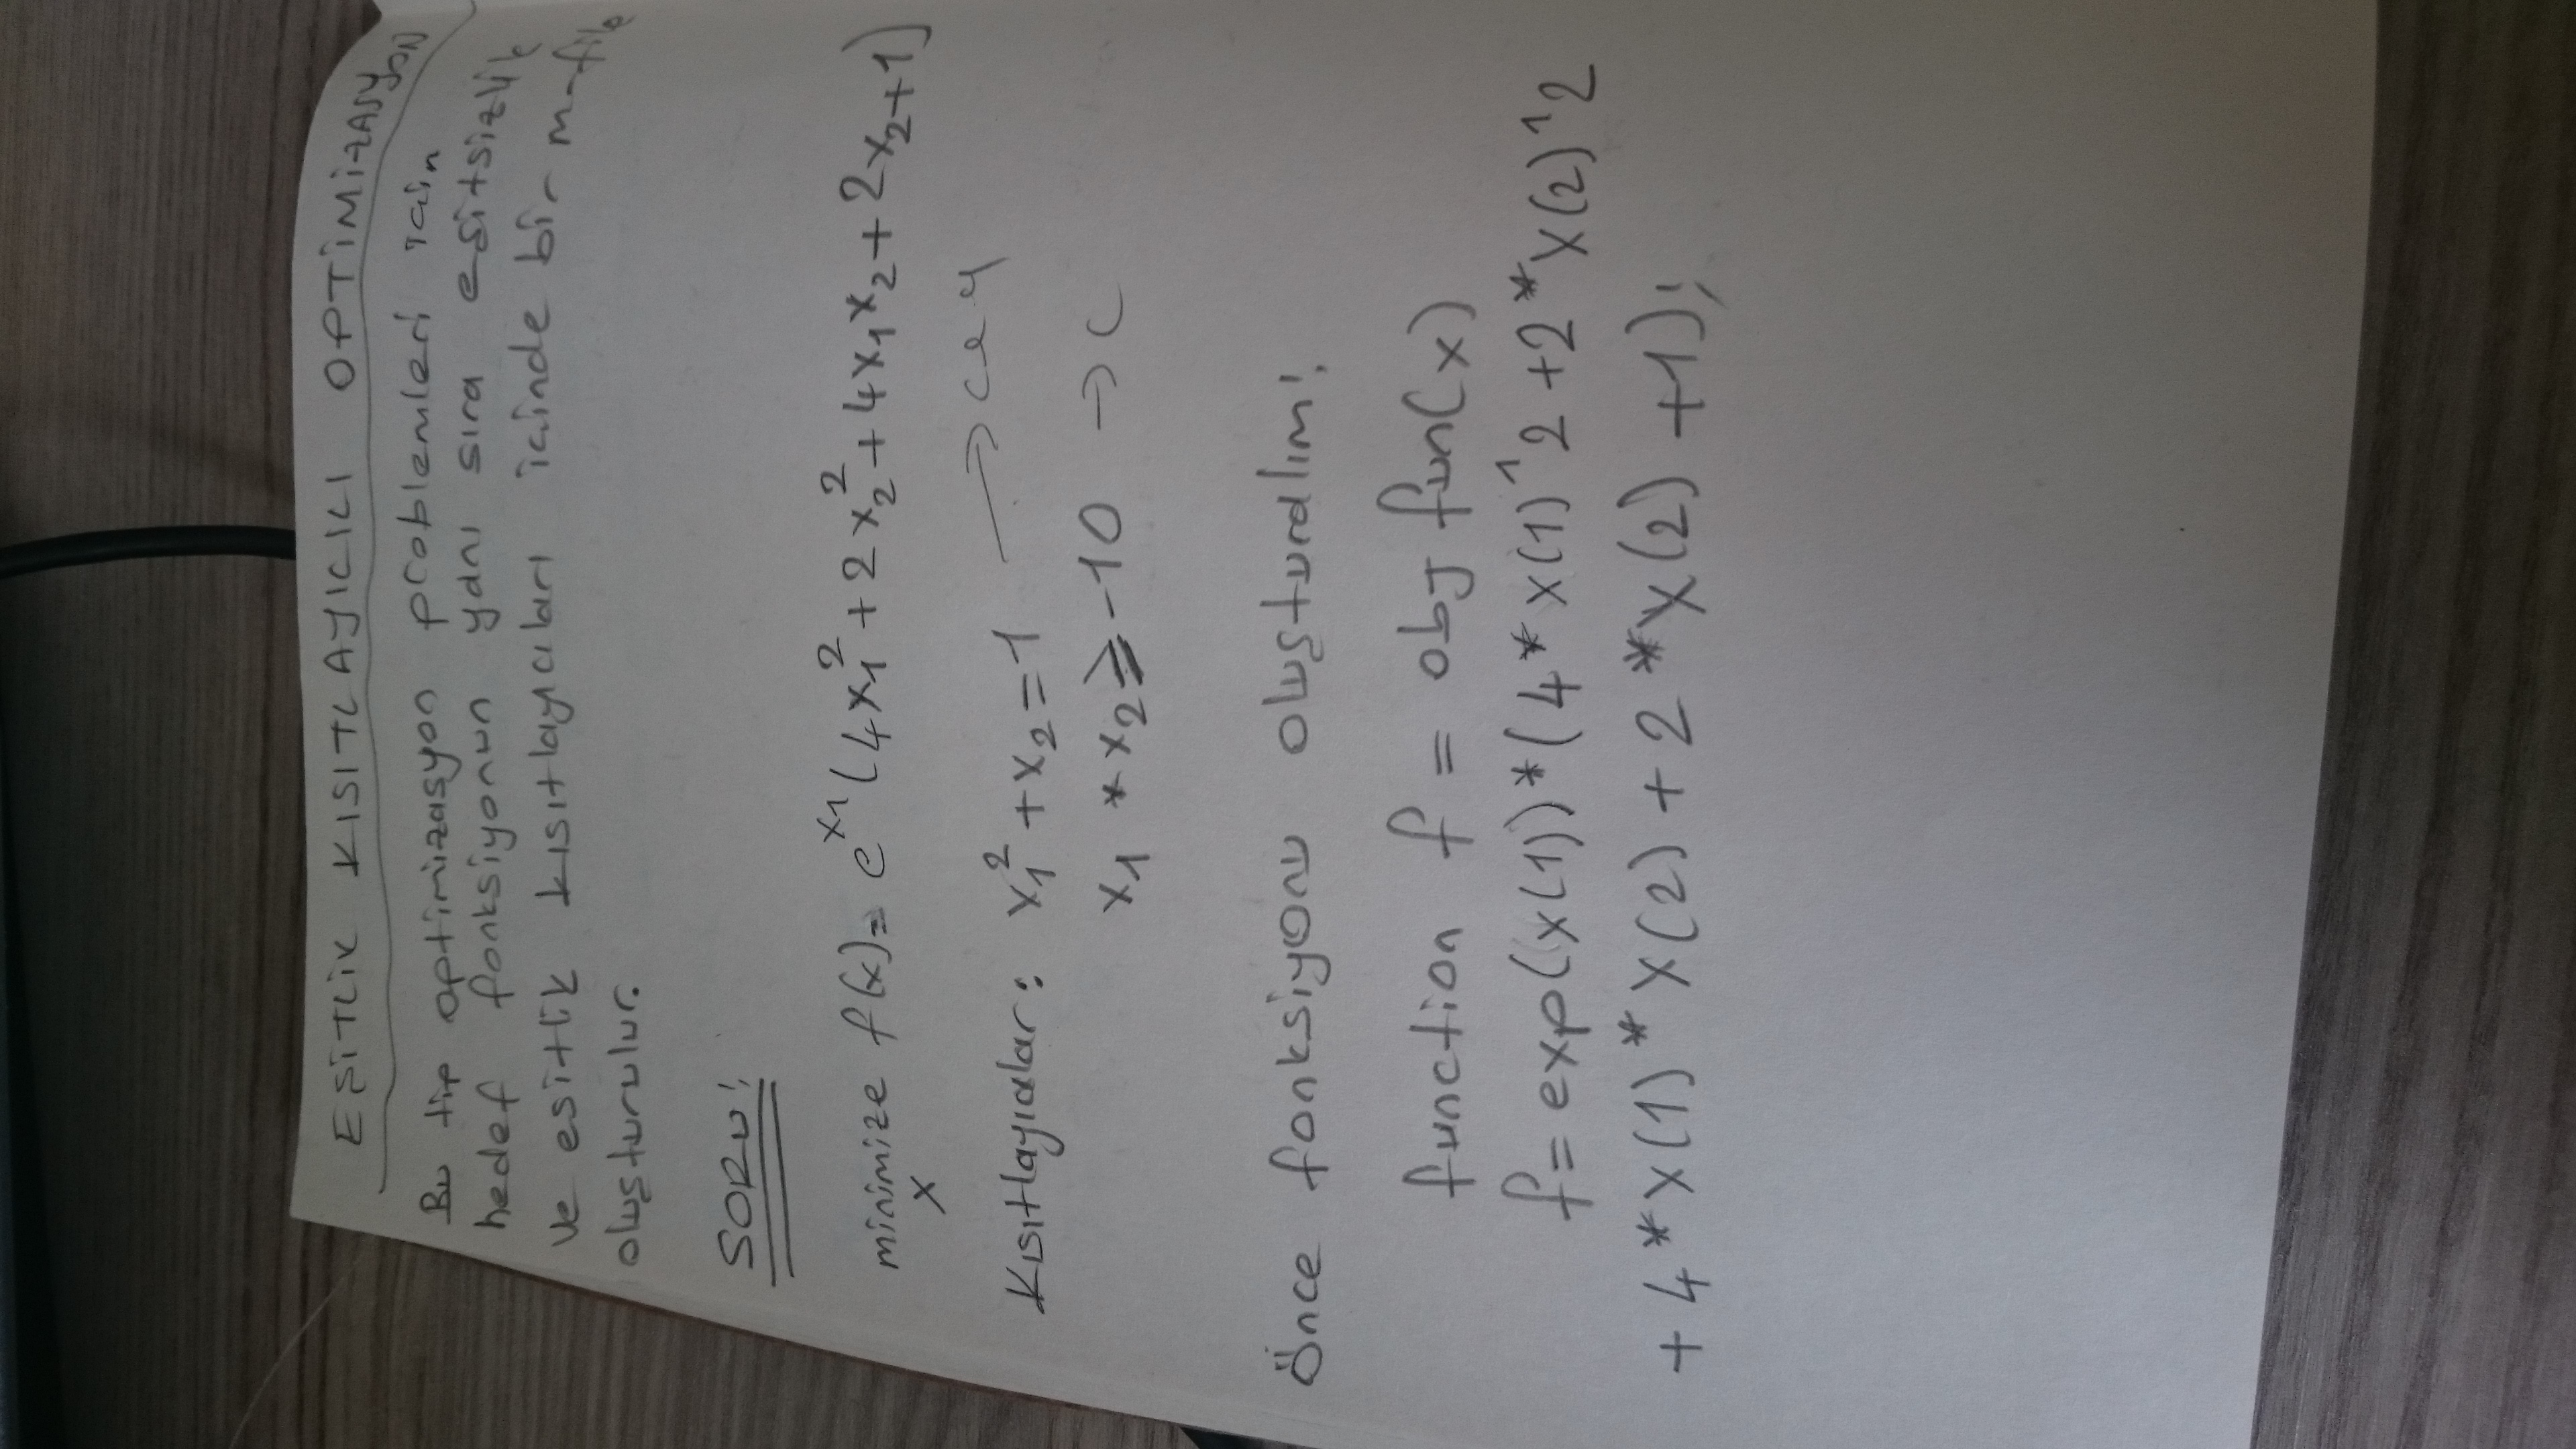 EŞİTLİK KISITLAYICILI OPTİMİZASYON
Bu tip optimizasyon problemleri için
hedef fonksiyonun yanı sıra eşitsizlik
ve eşitlik kısıtlayıcıları içinde bir m-file
oluşturulur.
SORU!
minimize f(x)= e^x1 (4x₁² + 2x₂² + 4x₁x₂ + 2x₂+1)
x
Kısıtlayıcılar: x₁² + x₂ = 1 → ceq
x₁ * x₂ ≥ -10 → c
Önce fonksiyonu oluşturalım!
function f = objfun(x)
f= exp(x(1))*(4*x(1)^2 +2*x(2)^2
+ 4*x(1)*x(2) + 2*x(2) +1);